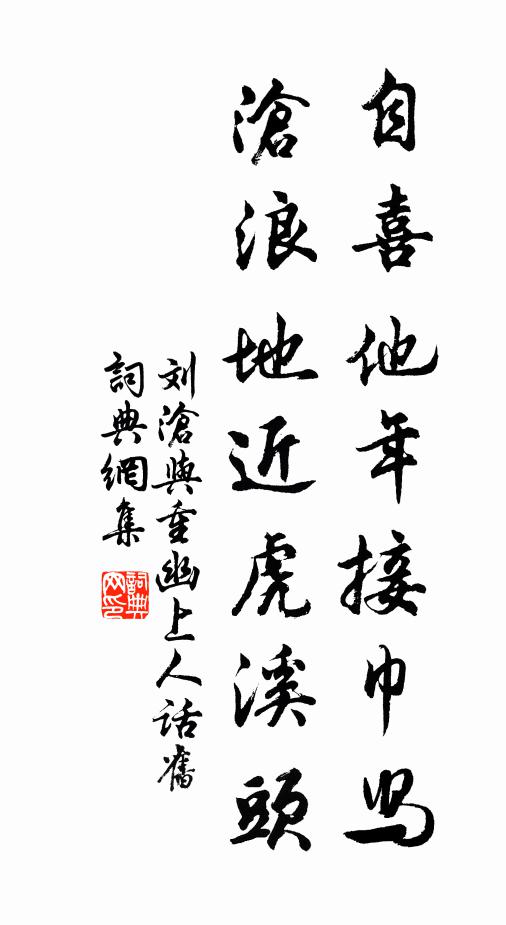 自喜他年接巾舄
滄浪地近虎溪頭
刘滄與重幽上人話舊
詞典網集
詞典网印